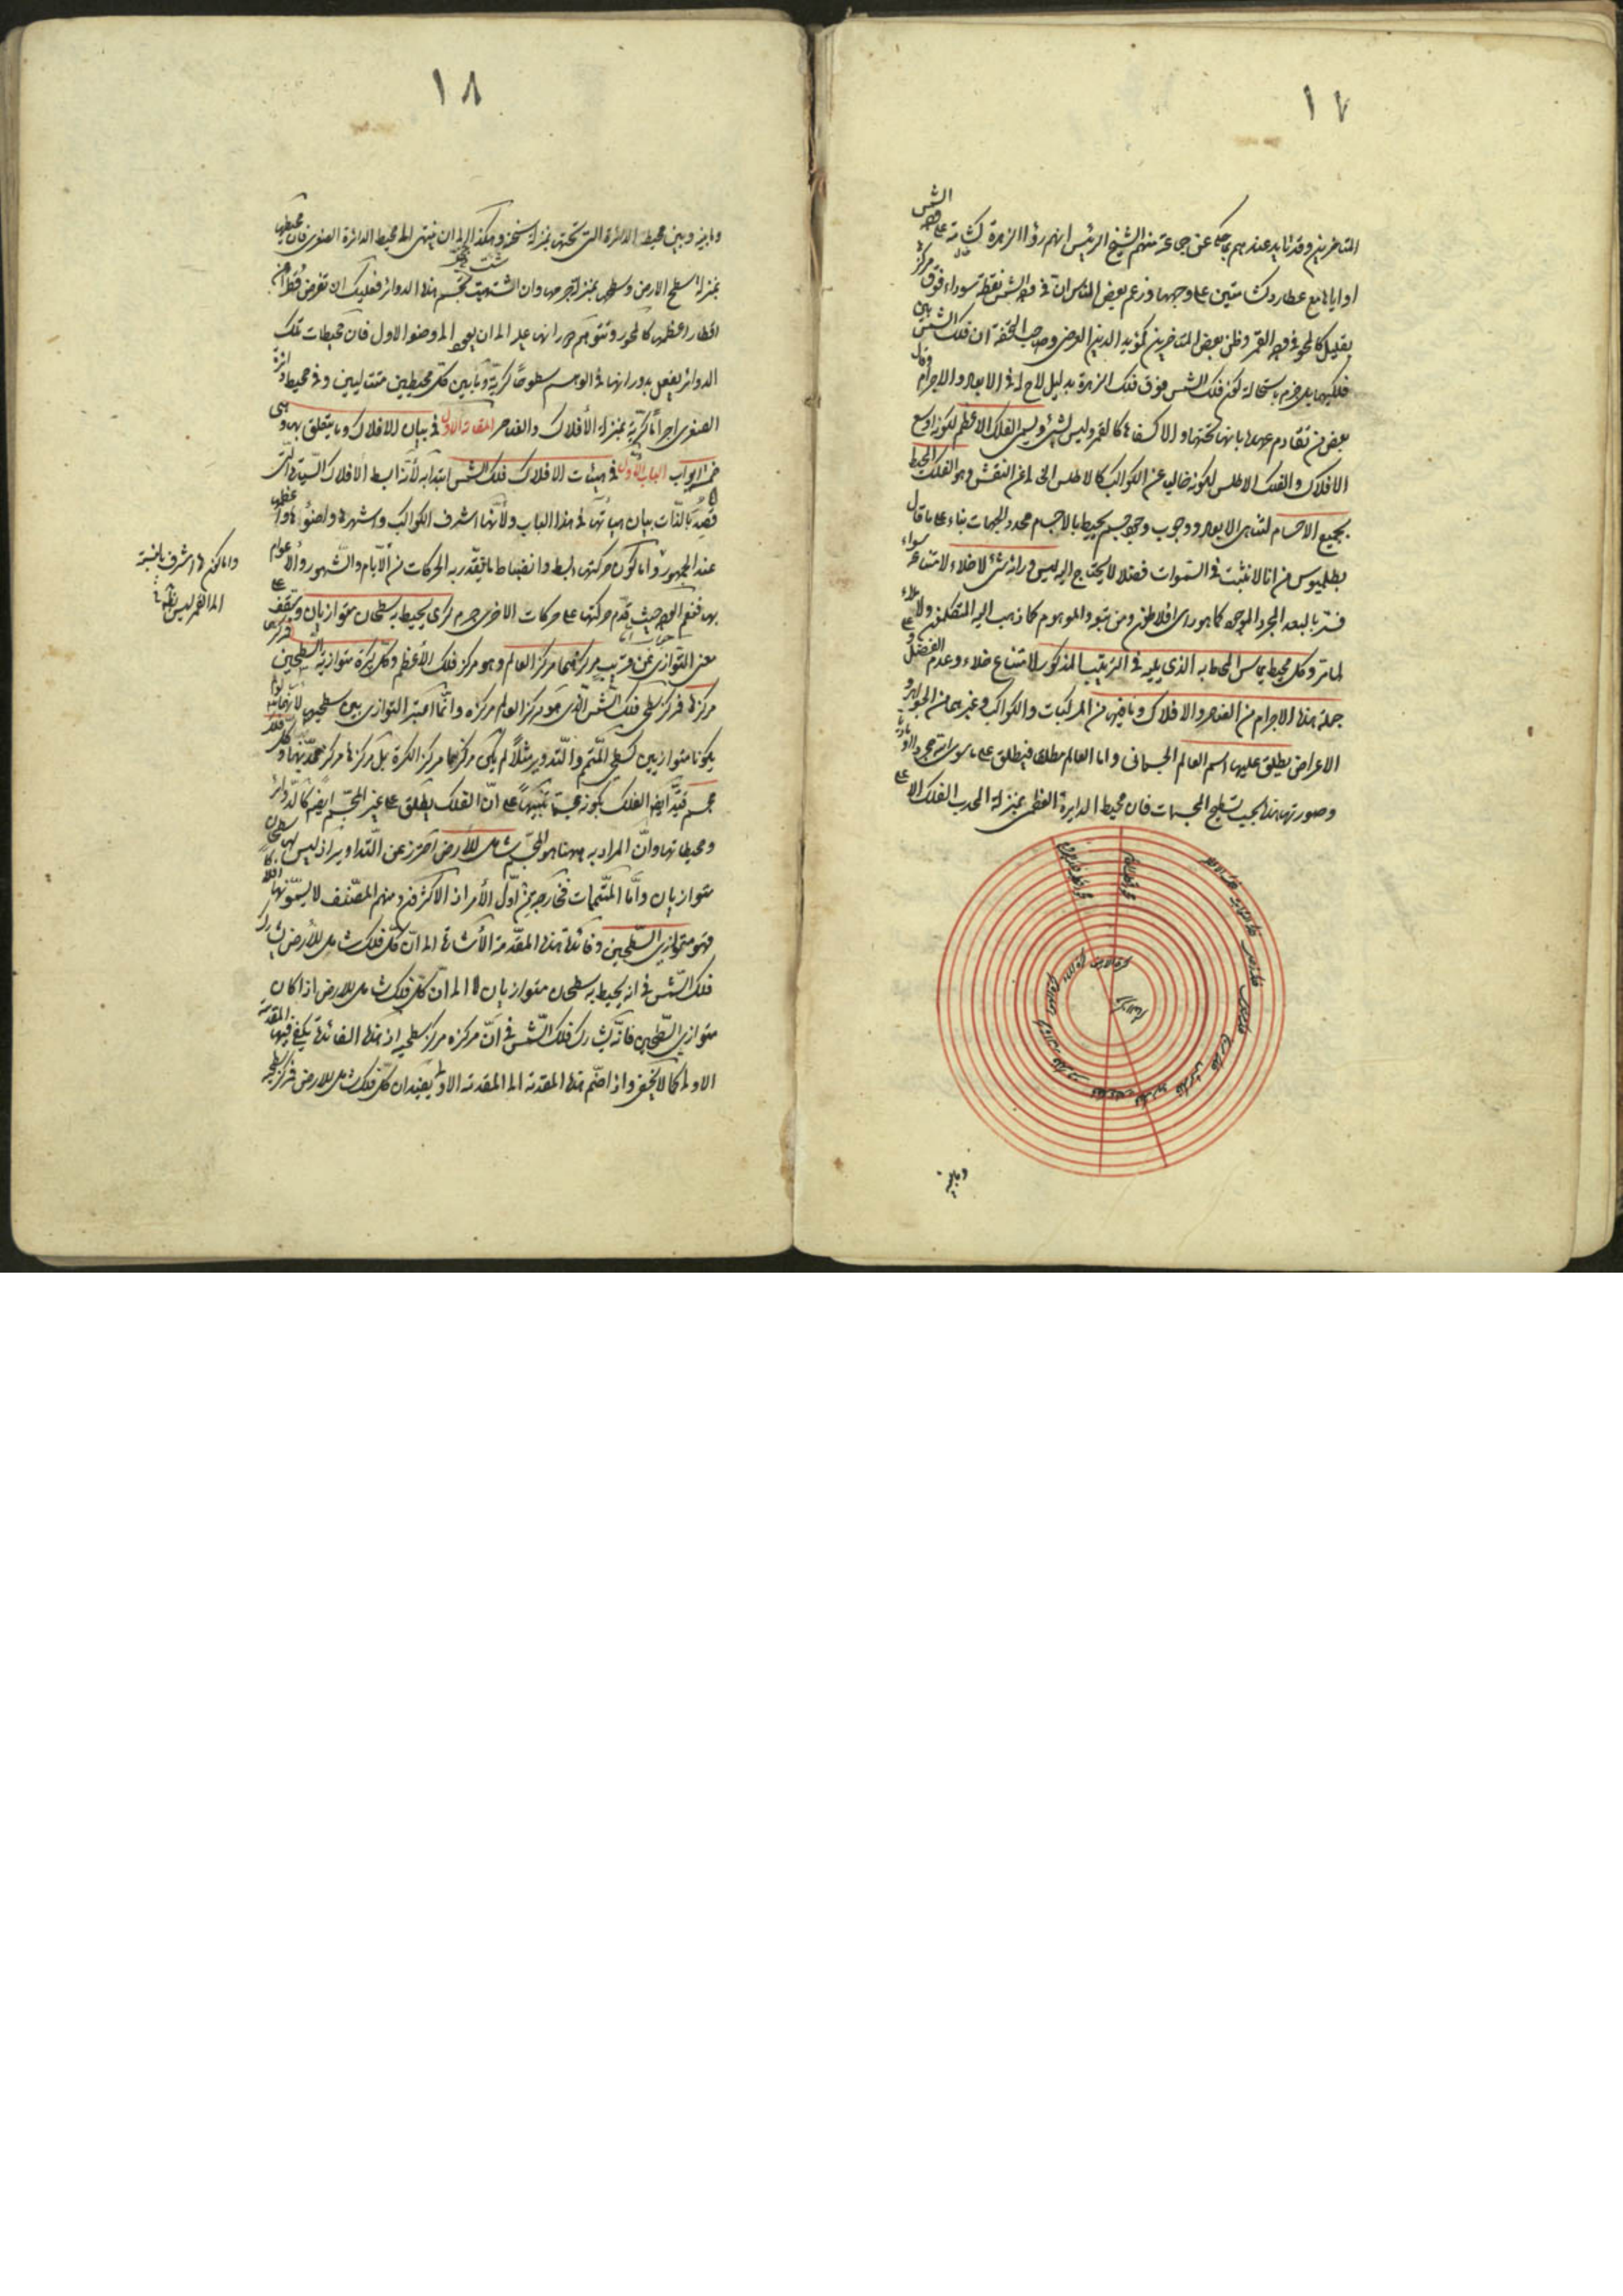 ١٧
المتأخرين وقد تأيد عندهم بما حكى عن جماعة منهم الشيخ الرئيس انهم رؤا الزهرة كشامة على وجه الشمس
او اياها مع عطارد كشامتين على وجهها وزعم بعض الناس ان في وجه الشمس نقطة سوداء فوق مركزها
بقليل كالمحو في وجه القمر وظن بعض المتأخرين كمؤيد الدين العرضي وصاحب التحفة ان فلك الشمس بين
فلكيهما بل جزم باستحالة كون فلك الشمس فوق فلك الزهرة بدليل لاح له في الابعاد والاجرام وقال
بعض من تقادم عهدها بانها تحتها والا كسفاها كالقمر وليس بشئ ويسمى الفلك الاعظم لكونه اوسع
الافلاك والفلك الاطلس لكونه خاليا عن الكواكب كالاطلس الخالي عن النقش وهو الفلك المحيط
بجميع الاجسام لتناهي الابعاد ووجوب وجود جسم يحيط بالاجسام محدد للجهات بناء على ما قال
بطلميوس من انا لا نثبت في السموات فضلا لا يحتاج اليه ليس وراءه شئ لا خلاء لامتناعه سواء
فسر بالبعد المجرد الموجود كما هو رأي افلاطون ومن تبعه او الموهوم كما ذهب اليه المتكلمون ولا ملاء
لما مر وكل محيط يماس المحاط به الذي يليه في الترتيب المذكور لامتناع خلاء وعدم الفضل
جملة هذه الاجرام من العناصر والافلاك وما فيهما من المركبات والكواكب وغيرهما من الجواهر و
الاعراض يطلق عليها اسم العالم الجسماني واما العالم مطلقا فيطلق على ما سوى الله مجردا او ماديا
وصورتها هذه بحيث تسطح المجسمات فان محيط الدايرة العظمى بمنزلة المحدب الفلك الاعلى
وما بينه
١٨
وما بينه وبين محيط الدائرة التي تحتها بمنزلة ثخنه وهكذا الى ان ينتهي الى محيط الدائرة الصغرى فان محيطها
بمنزلة سطح الارض وسطحها بمنزلة جرمها وان اشتهيت تجسم هذه الدوائر فعليك ان تفرض قطرا من
اقطار اعظمها كالمحور وتتوهم دورانها عليه الى ان يعود الى وضعه الاول فان محيطات تلك
الدوائر يفعل بدورانها في الوهم سطوحا كرية وما بين كل محيطين متتاليين وفي محيط دائرة
الصغرى اجراما كرية بمنزلة الأفلاك والعناصر المقالة الاولى في بيان الافلاك وما يتعلق بها وهي
خمسة ابواب الباب الاول في هيئات الافلاك فلك الشمس ابتدأ به لأنه ابسط الافلاك السيارة التي
قصد بالذات بيان هيأتها في هذا الباب ولأنها اشرف الكواكب واشهرها ولضوئها واعظمها
عند الجمهور واما كون حركتها ابسط وانضباط ما يتقدر به الحركات من الأيام والشهور والأعوام
بها فنعم الوجه حيث يقدم حركتها على حركات الاخرى جرم كري يحيط به سطحان متوازيان وستقف على
معنى التوازي عن قريب مركزهما مركز العالم وهو مركز فلك الأعظم وكل كرة متوازية السطحين
مركزها فمركز سطحي فلك الشمس الذي هو مركز العالم مركزه وانما اعتبر التوازي بين سطحيها لأنهما لو لم
يكونا متوازيين كسطحي المتمم والتدوير مثلا لم يكن مركزهما مركز الكرة بل مركزها مركز محدبها وكل فلك
مجسم قيد ايضا الفلك بكونه مجسما تنبيها على ان الفلك يطلق على غير المجسم ايضا كالدوائر
ومحيطاتها وان المراد به ههنا هو المجسم شامل للأرض احترز عن التداوير اذ ليس لها سطحان
متوازيان واما المتممات فخارجة من اول الأمر اذ الاكثرون ومنهم المصنف لا يسمونها افلاكا
فهو متوازي السطحين وفائدة هذه المقدمة الأشارة الى ان كل فلك شامل للأرض يشارك
فلك الشمس في انه يحيط به سطحان متوازيان لا الى ان كل فلك شامل للارض اذا كان
متوازي السطحين فانه يشارك فلك الشمس في ان مركزه مركز سطحيه اذ هذه الفائدة يكفي فيها المقدمة
الاولى كما لا يخفى واذا ضم هذه المقدمة الى المقدمة الاولى يفيد ان كل فلك شامل للارض فمركز سطحيه
واما كونها اشرف بالنسبة
الى القمر ليس